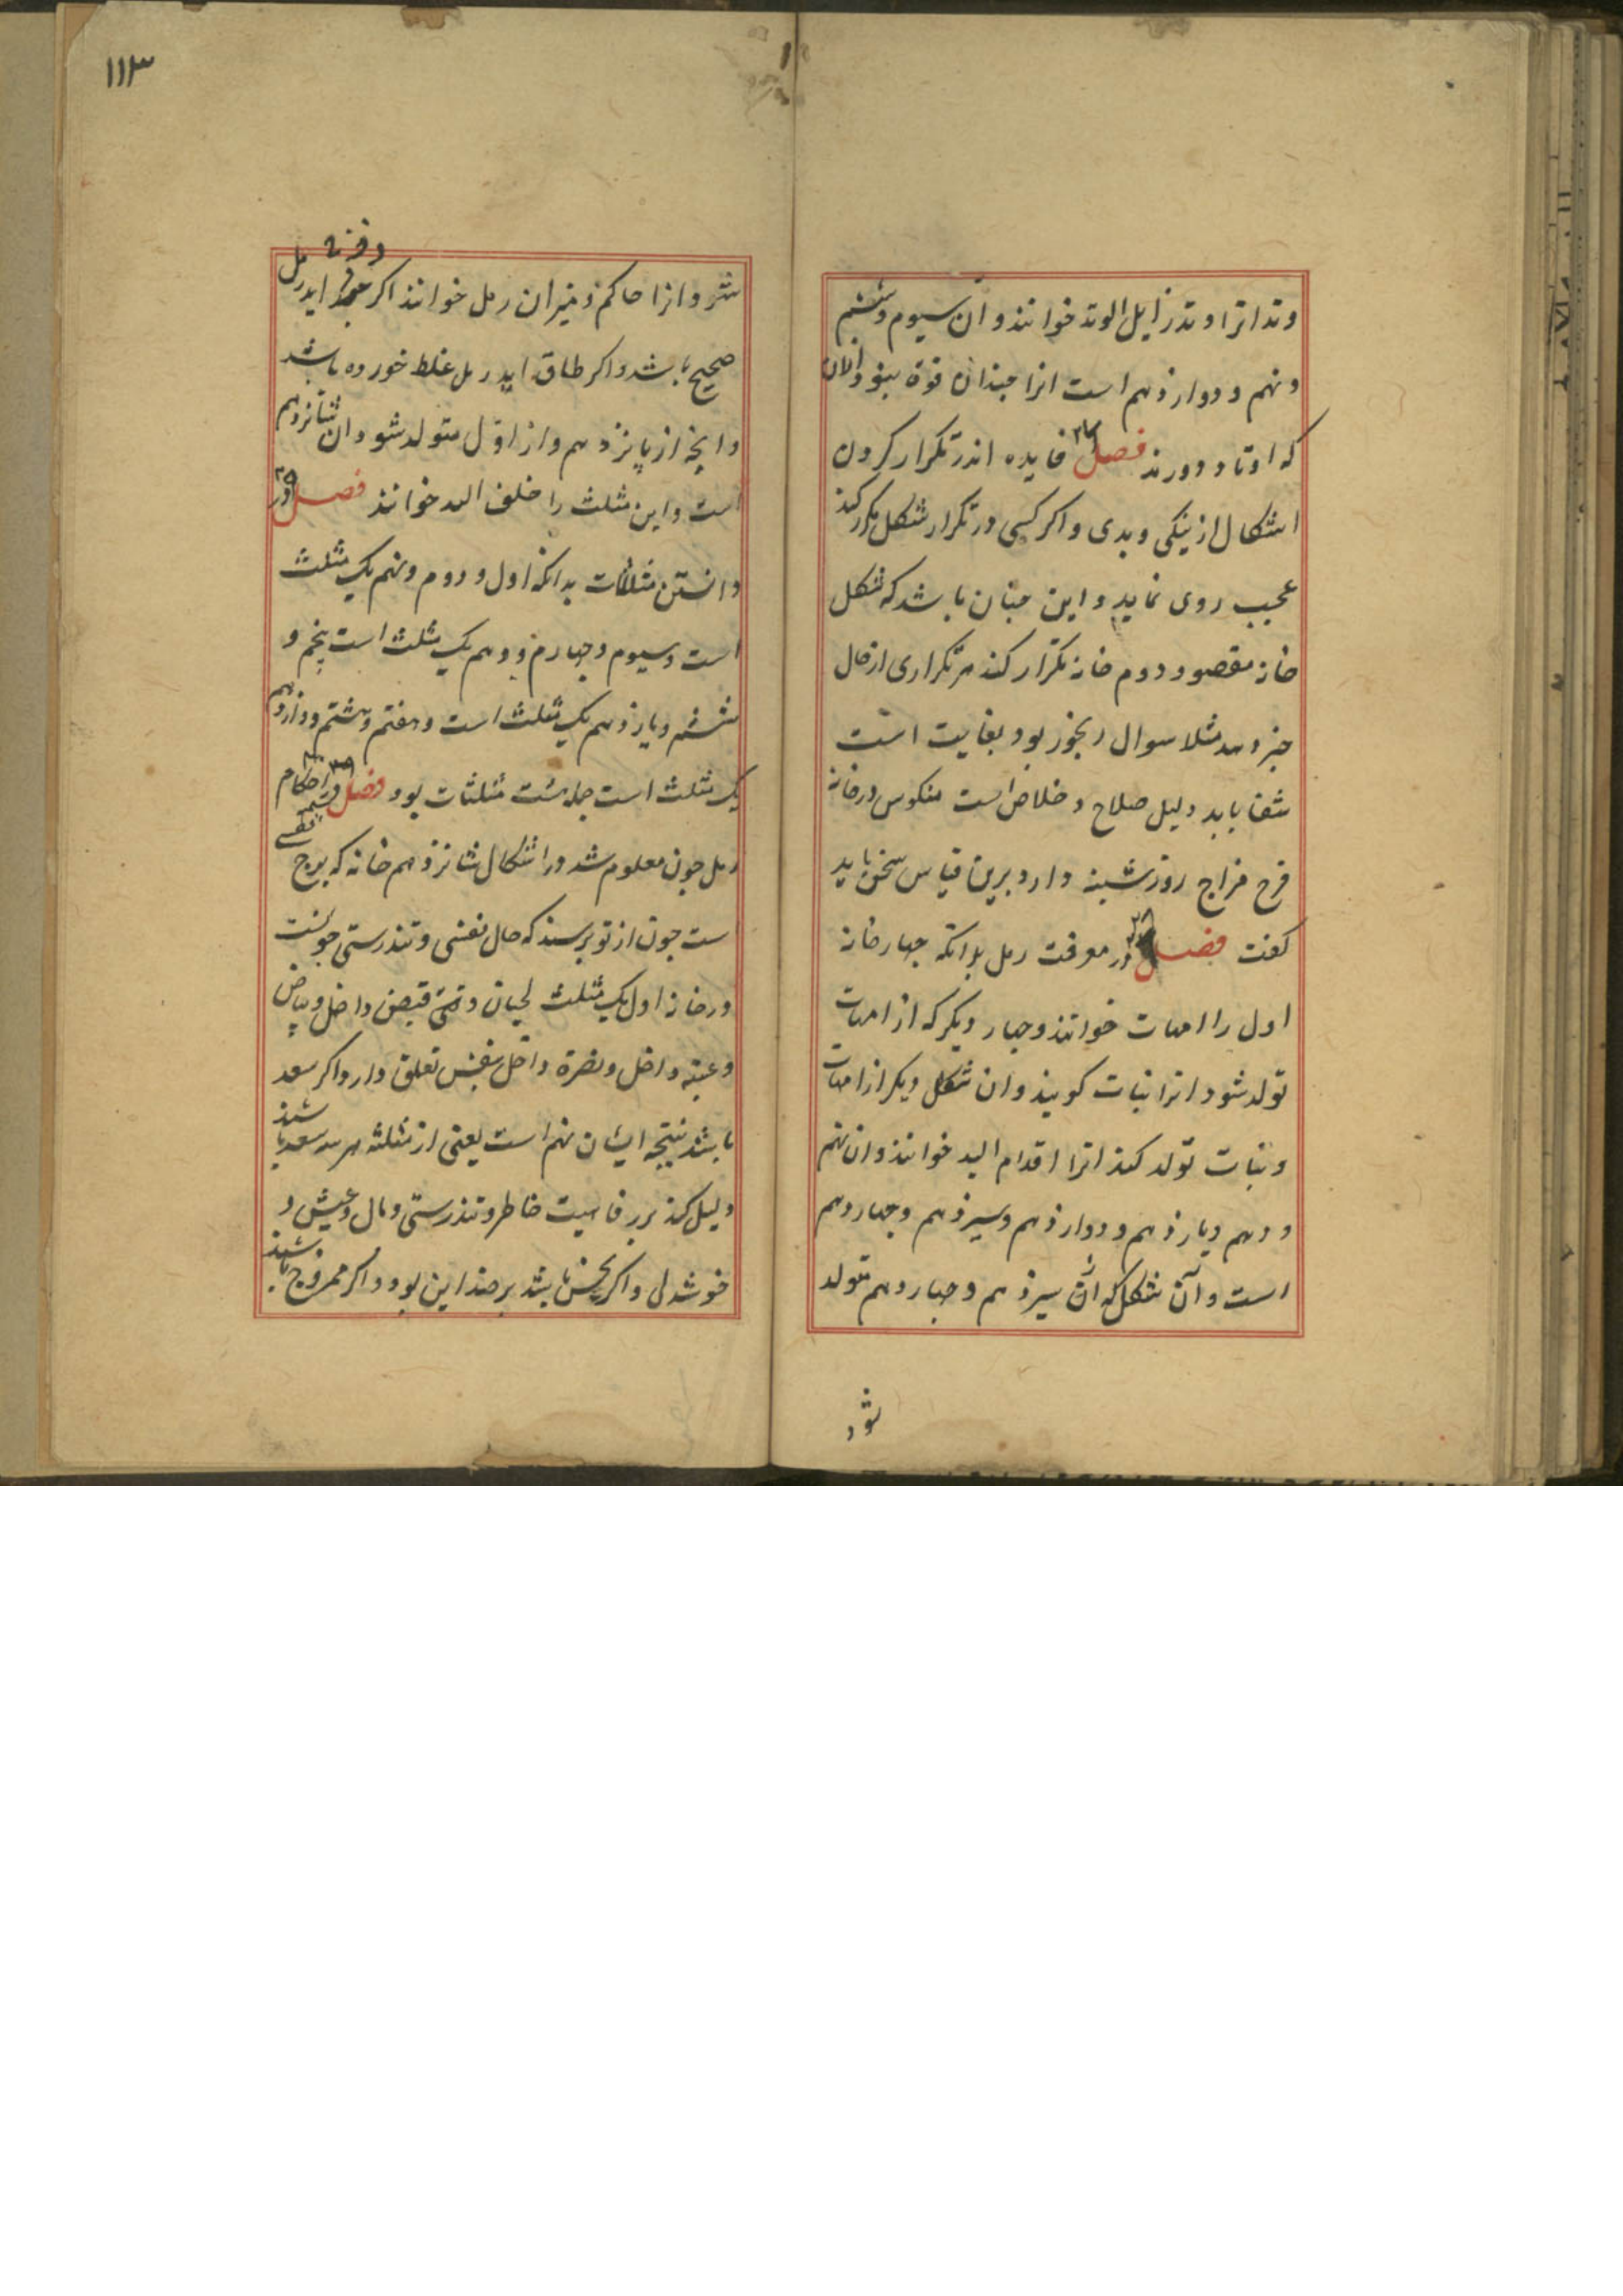 وتد انرا وتد زایل الوتد خوانند و ان سیوم و ششم
و نهم و دوازدهم است انرا چندان قوة نبود الا ان
که اوتاد دورند فصل فایده اندر تکرار کردن
اشکال از نیکی و بدی و اکر کسی در تکرار شکل مکرر کند
عجیب روی نماید و این چنان باشد که شکل
خانه مقصود دوم خانه تکرار کند هر تکراری از حال
خبر دهد مثلا سوال رنجور بود بغایت است
شفا یابد دلیل صلاح و خلاص است منکوس در خانه
فرح مزاج روز شنبه دارد برین قیاس سخن باید
کفت فصل ۳۸ در معرفت رمل بدانکه چهار خانه
اول را امهات خوانند و چهار دیکر که از امهات
تولد شود انرا نبات کویند و ان شکل دیکر از امهات
و نبات تولد کند انرا اقدام الید خوانند و ان نهم
و دهم و یازدهم و دوازدهم و سیزدهم و چهاردهم
است و آن شکل که ازن سیزدهم و چهاردهم متولد
شود
۱۱۳
شود و انرا حاکم و میزان رمل خوانند اکر اید رمل
صحیح باشد و اکر طاق اید رمل غلط خورده باشد
و انچه از پانزدهم و از اول متولد شود ان شانزدهم
است و این مثلث را خلف الید خوانند فصل ۳۹ در
دانستن مثلثات بدانکه اول و دوم و نهم یک مثلث
است و سیوم و چهارم و دهم یک مثلث است پنجم و
ششم و یازدهم یک مثلث است و هفتم و هشتم و دوازدهم
یک مثلث است جمله مثلثات بود فصل در احکام
رمل چون معلوم شد در اشکال شانزدهم خانه که برج
ست چون از تو پرسند که حال نفسی و تندرستی چونست
در خانه اول یک مثلث لحیان و نقی قبض داخل و بیاض
و عتبه داخل و نصرة داخل بنفس تعلق دارد اکر سعد
باشد نتیجه ایشان نهم است یعنی از مثلثه هر سه سعد باشند
دلیل کند بر رفاهیت خاطر و تندرستی و مال و عیش و
خوشدلی و اکر نحس باشد بر ضد این بود و اکر ممزوج باشند